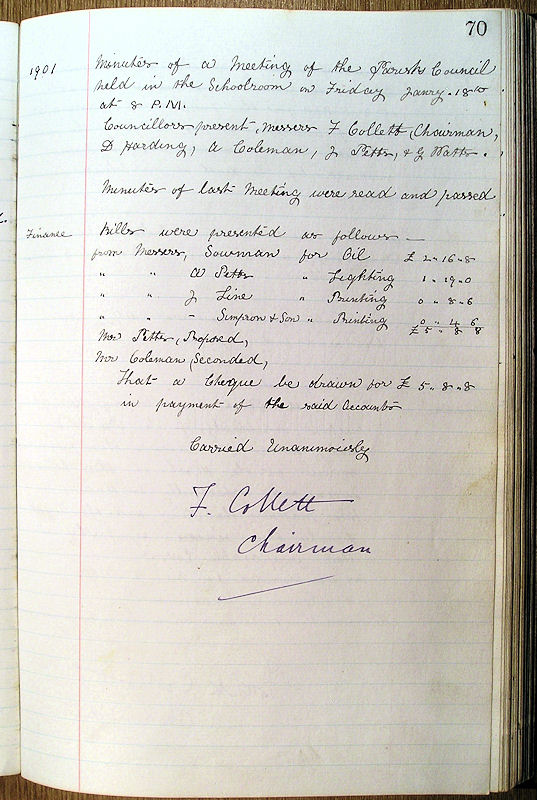 70
1901 Minutes of a Meeting of the Parish Council
held in the Schoolroom on Friday Janry. 18th
at 8 P.M.
Councillors present, Messers F Collett, Chairman,
D Harding, A Coleman, J Petts, & G Watts.
Minutes of last Meeting were read and passed
Finance Bills were presented as follows —
from Messers, Sowman for Oil £ 2 " 16 " 8
" " A Petts " Lighting 1 " 19 " 0
" " J Line " Printing 0 " 8 " 6
" " " Simpson & Son " Printing 0 " 4 " 6
£ 5 " 8 " 8
Mr Petts, Proposed,
Mr Coleman, Seconded,
That a Cheque be drawn for £ 5 " 8 " 8
in payment of the said accounts
Carried Unanimously
F. Collett
Chairman